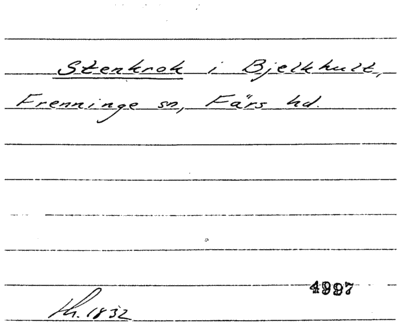 Stenkrok i Bjelkhult,
Frenninge sn, Färs hd.
4997
th. 1832